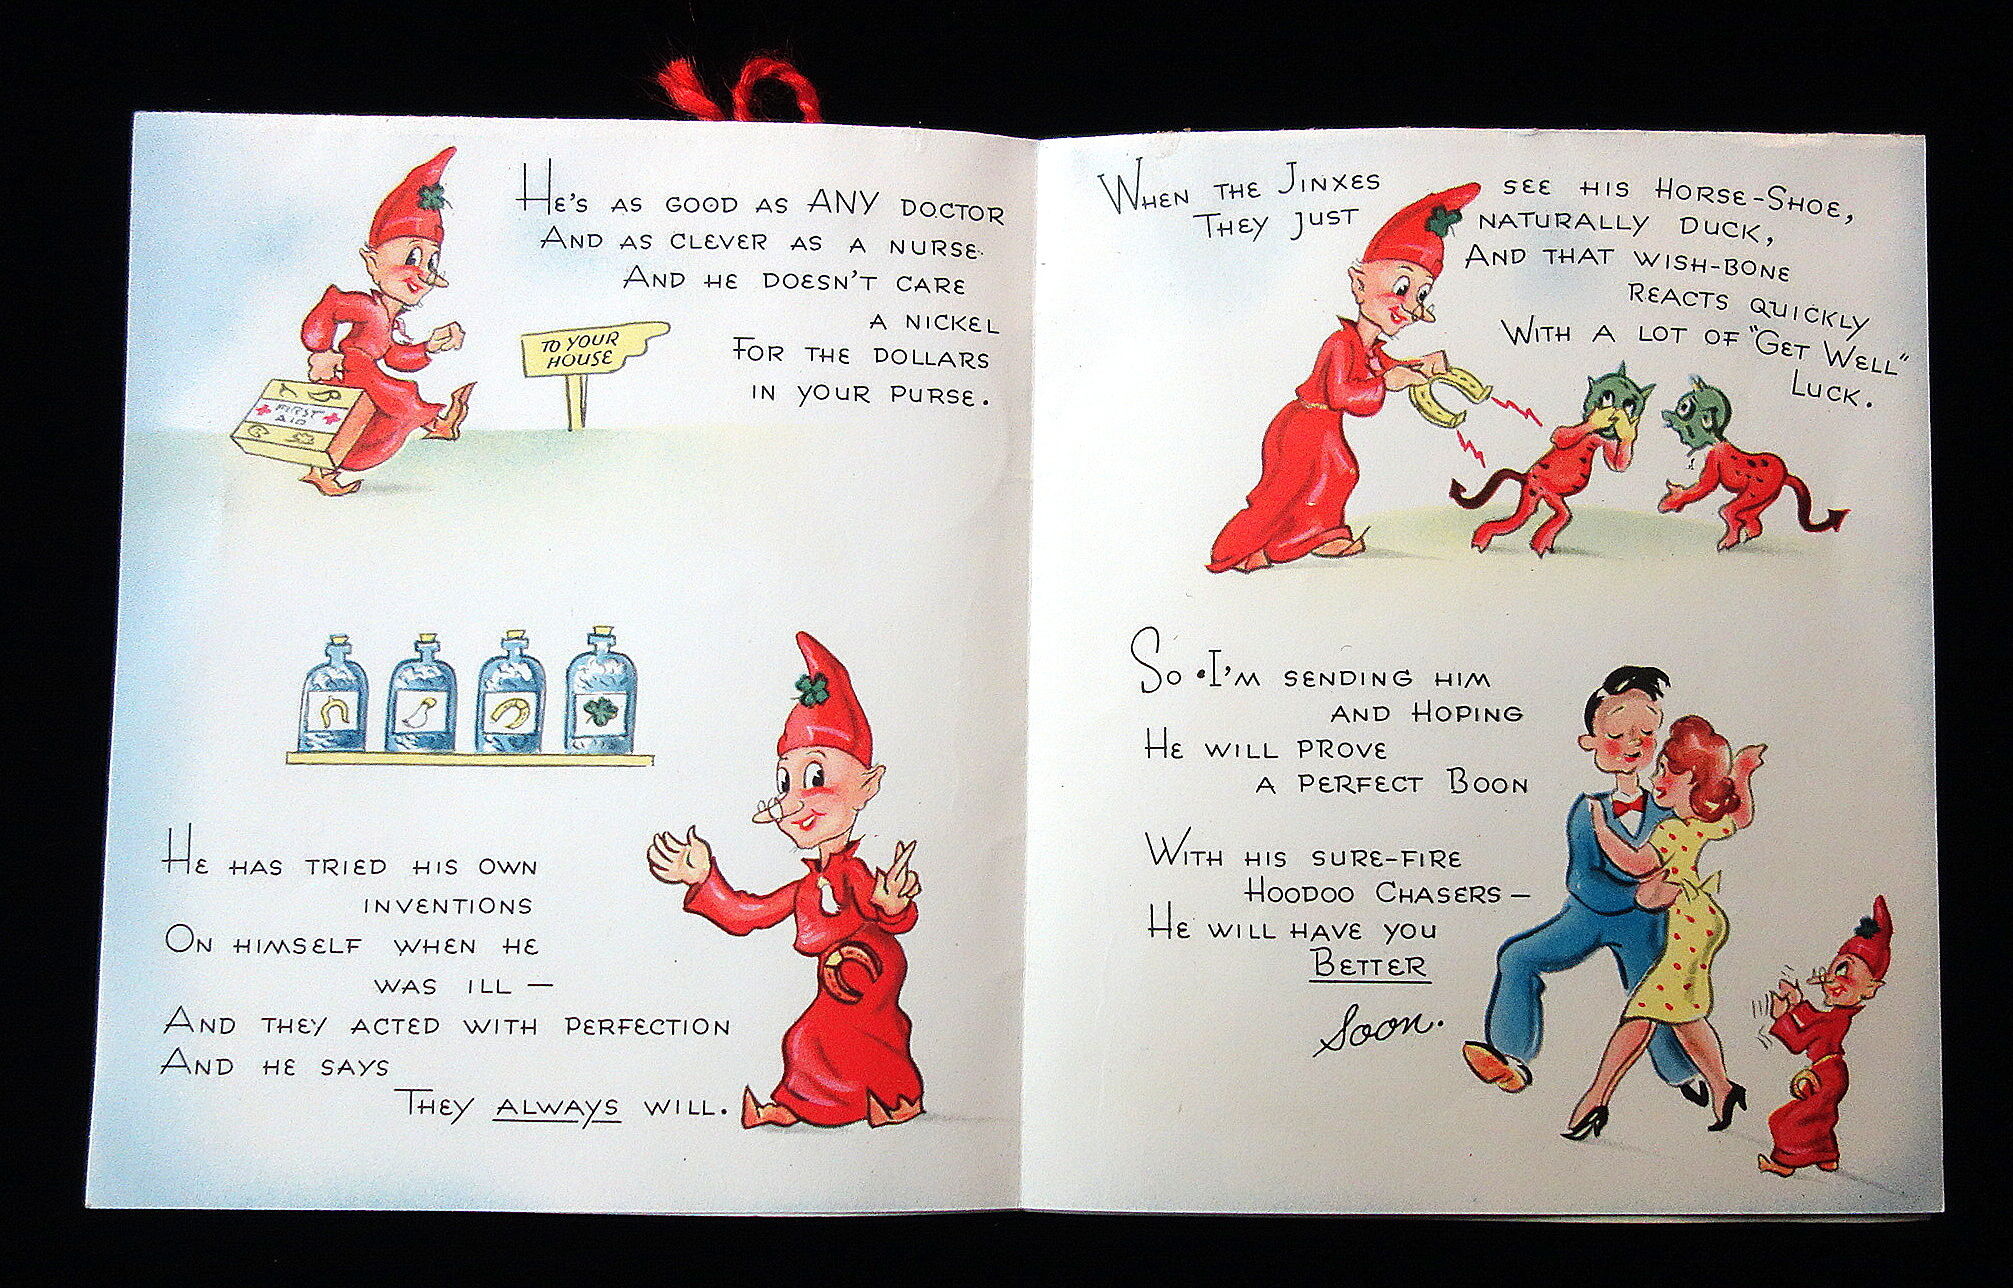 HE'S AS GOOD AS ANY DOCTOR
AND AS CLEVER AS A NURSE.
AND HE DOESN'T CARE
A NICKEL
FOR THE DOLLARS
IN YOUR PURSE.
TO YOUR
HOUSE
FIRST
AID
HE HAS TRIED HIS OWN
INVENTIONS
ON HIMSELF WHEN HE
WAS ILL —
AND THEY ACTED WITH PERFECTION
AND HE SAYS
THEY ALWAYS WILL.
WHEN THE JINXES SEE HIS HORSE-SHOE,
THEY JUST NATURALLY DUCK,
AND THAT WISH-BONE
REACTS QUICKLY
WITH A LOT OF "GET WELL"
LUCK.
SO I'M SENDING HIM
AND HOPING
HE WILL PROVE
A PERFECT BOON
WITH HIS SURE-FIRE
HOODOO CHASERS —
HE WILL HAVE YOU
BETTER
Soon.